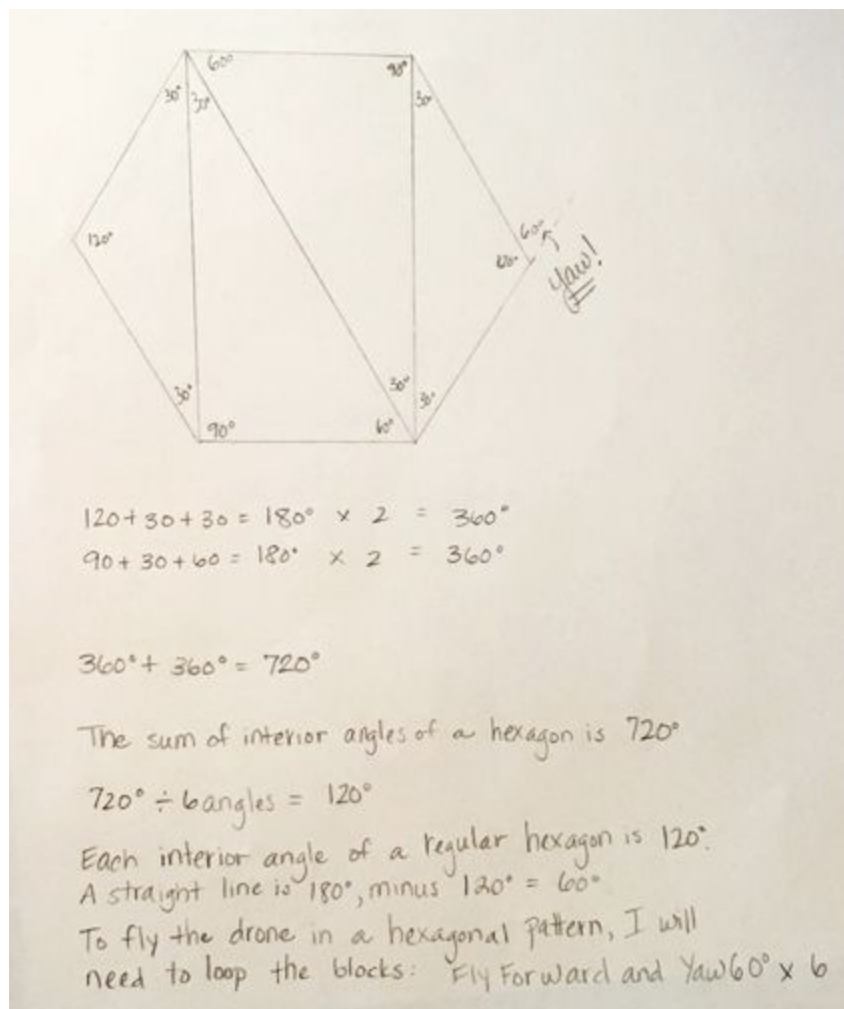 60°
90°
30°
30°
30°
120°
60°
60°
Yaw!
30°
30°
30°
90°
60°
120+30+30 = 180° x 2 = 360°
90+30+60 = 180° x 2 = 360°
360° + 360° = 720°
The sum of interior angles of a hexagon is 720°
720° ÷ 6 angles = 120°
Each interior angle of a regular hexagon is 120°.
A straight line is 180°, minus 120° = 60°
To fly the drone in a hexagonal pattern, I will
need to loop the blocks: Fly Forward and Yaw 60° x 6